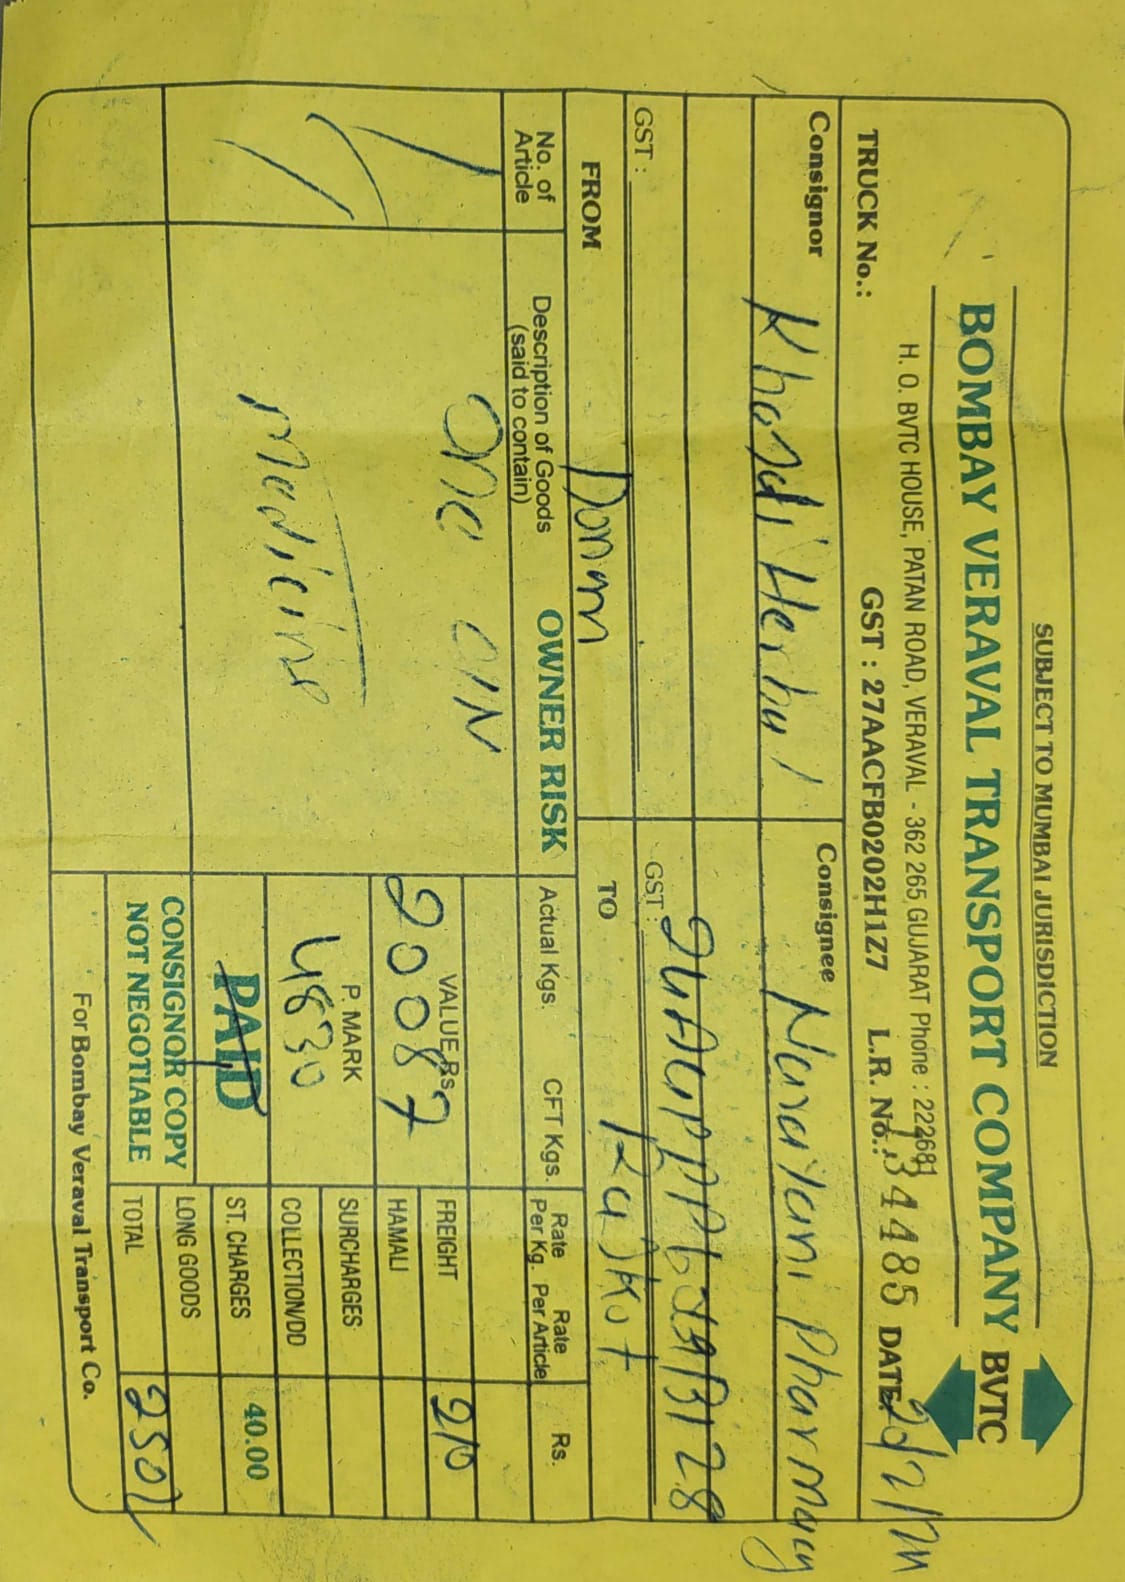 SUBJECT TO MUMBAI JURISDICTION
BOMBAY VERAVAL TRANSPORT COMPANY BVTC
H. O. BVTC HOUSE, PATAN ROAD, VERAVAL - 362 265 GUJARAT Phone : 222681
TRUCK No.: GST : 27AACFB0202H1Z7 L.R. No.: 134485 DATE:
Consignor Khodi Herbul Consignee Narayani Pharmacy
GST : GST :
FROM TO Rajkot
No. of Article Description of Goods (said to contain) OWNER RISK Actual Kgs. CFT Kgs. Rate Per Kg. Rate Per Article Rs.
one
VALUE Rs. FREIGHT 210
20087 HAMALI
P. MARK SURCHARGES
medicine 4830 COELECTION/DD
PAID ST. CHARGES 40.00
CONSIGNOR COPY LONG GOODS
NOT NEGOTIABLE TOTAL 250/
For Bombay Veraval Transport Co.